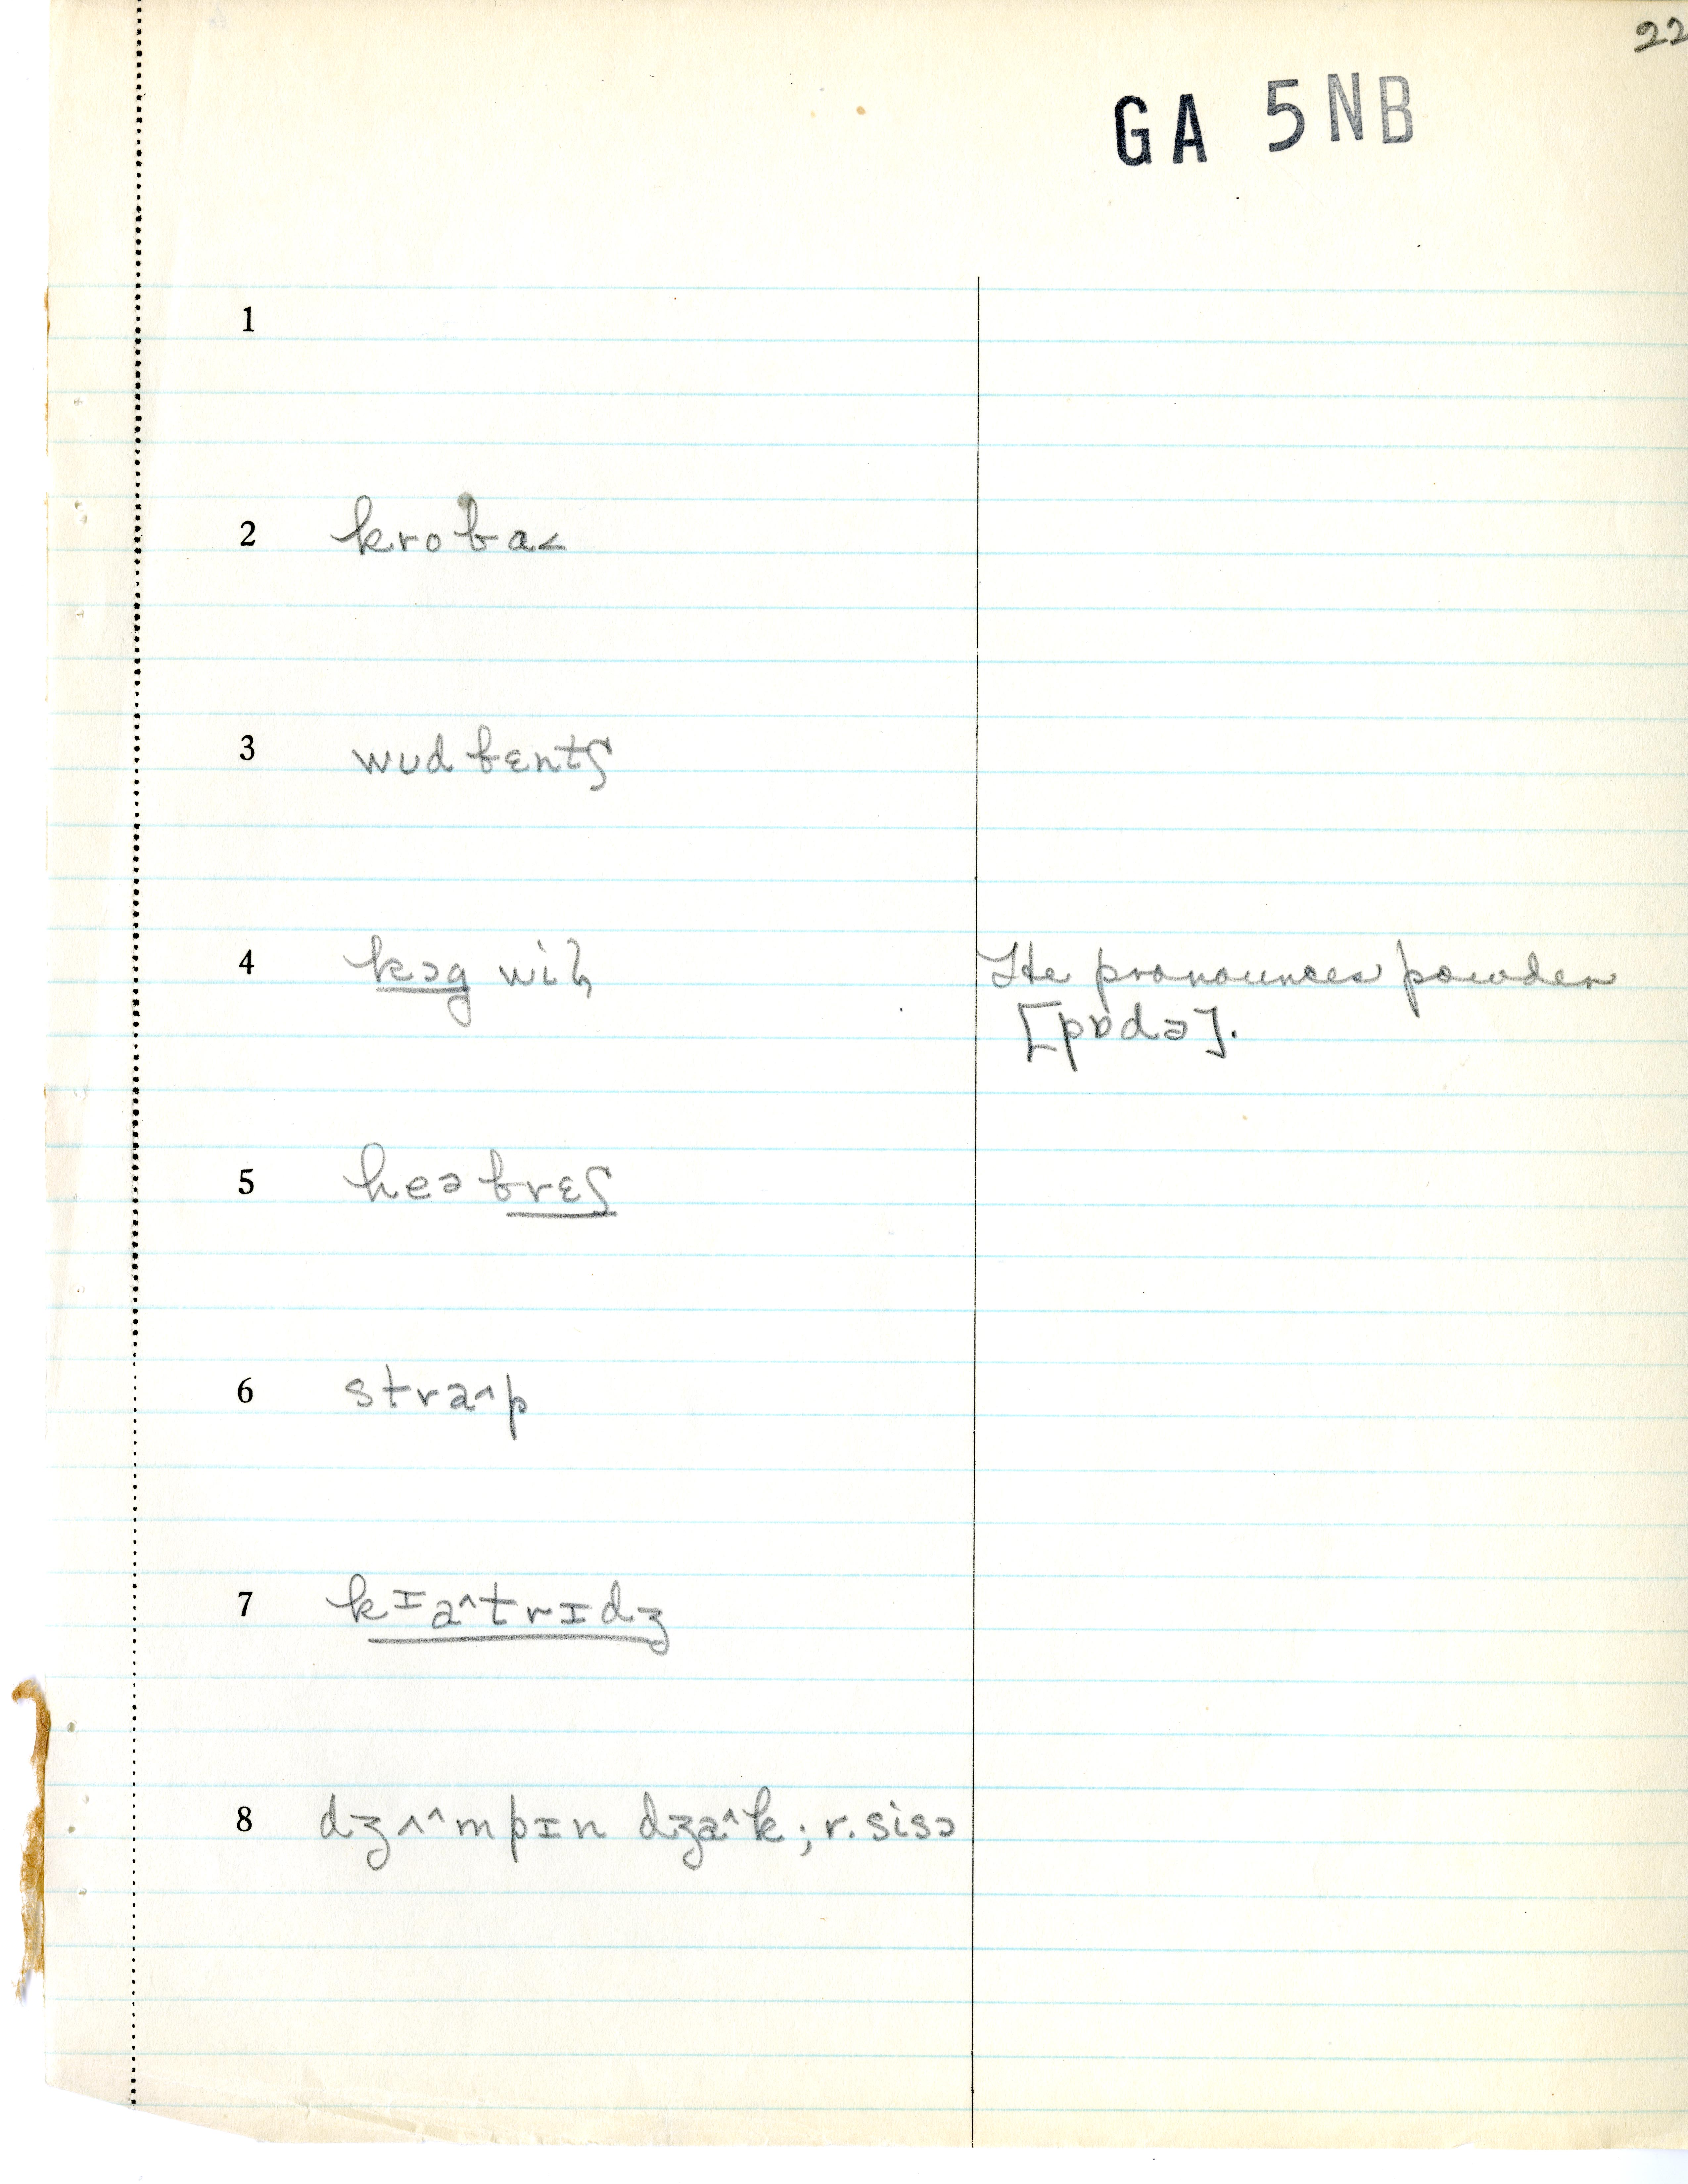 22
GA 5NB
1
2 kroba<
3 wud bɛntʃ
4 kɜg wiɫ He pronounces powder
[pɒdə].
5 heə brɛʃ
6 stra^p
7 kɪa^trɪdʒ
8 dʒʌ^mpɪn dʒa^k; r. sisɔ